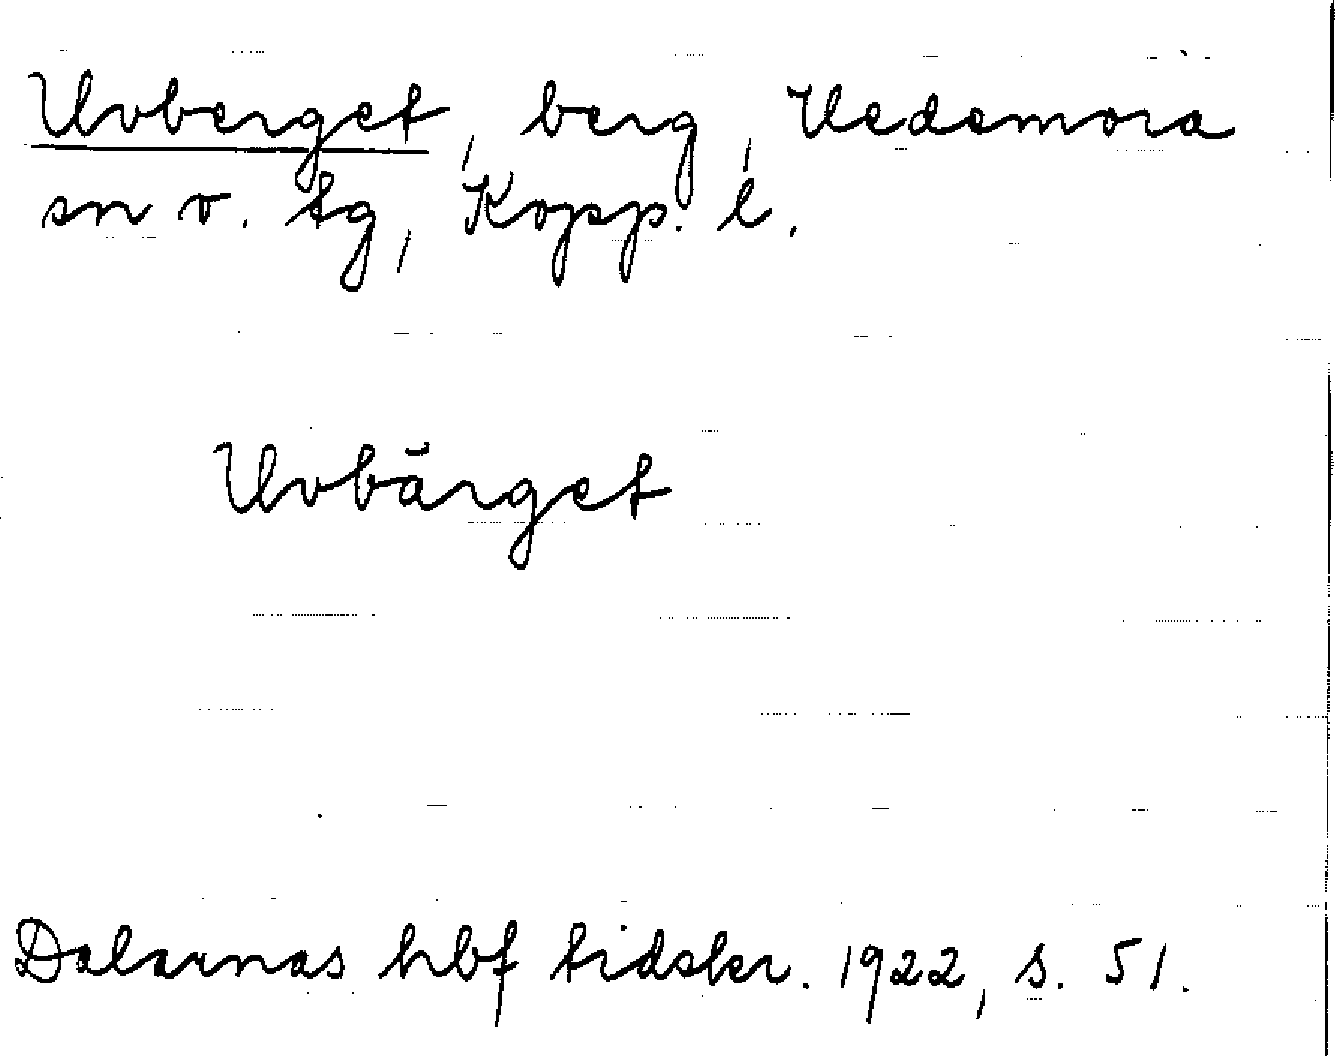 Uvberget, berg, Hedemora
sn o. tg, Kopp. l.
Uvbärget
Dalarnas hbf tidskr. 1922, s. 51.